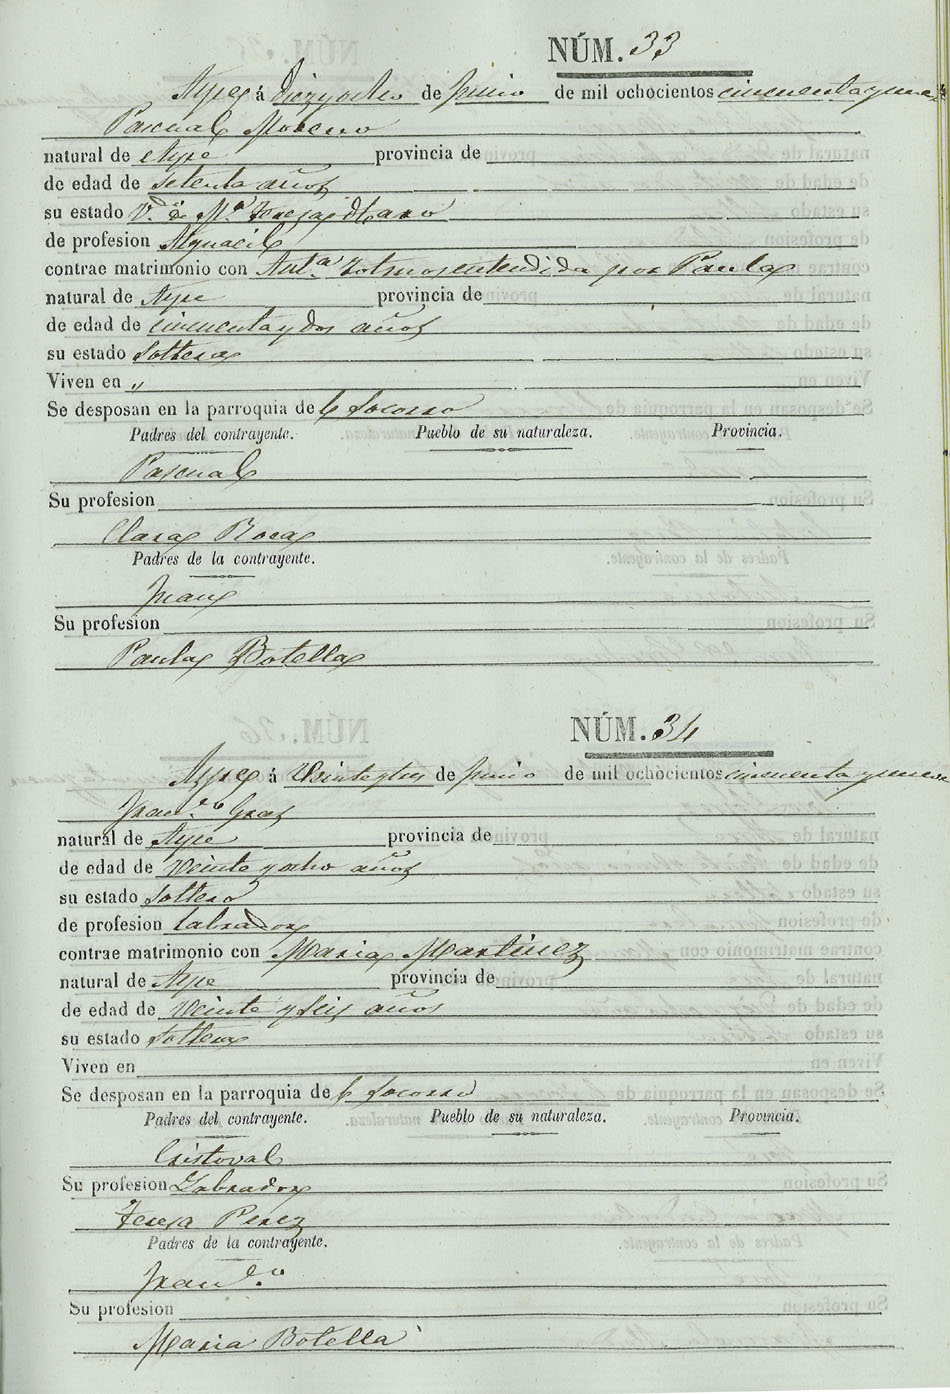 NÚM. 33
Aspe á Diez y ocho de Junio de mil ochocientos cincuenta y nueve
Pascual Moreno
natural de Aspe provincia de
de edad de setenta años
su estado V.do de M.a Teresa
de profesion Alguacil
contrae matrimonio con Ant.a entendida por Paula
natural de Aspe provincia de
de edad de cincuenta y dos años
su estado Soltera
Viven en "
Se desposan en la parroquia de el Socorro
Padres del contrayente. Pueblo de su naturaleza. Provincia.
Pascual
Su profesion
Clara Roca
Padres de la contrayente.
Juan
Su profesion
Paula Botella
NÚM. 34
Aspe á Veinte y tres de Junio de mil ochocientos cincuenta y nueve
Fran.co Gras
natural de Aspe provincia de
de edad de veinte y ocho años
su estado Soltero
de profesion Labrador
contrae matrimonio con Maria Martinez
natural de Aspe provincia de
de edad de veinte y seis años
su estado Soltera
Viven en
Se desposan en la parroquia de el Socorro
Padres del contrayente. Pueblo de su naturaleza. Provincia.
Cristoval
Su profesion Labrador
Teresa Perez
Padres de la contrayente.
Fran.co
Su profesion
Maria Botella